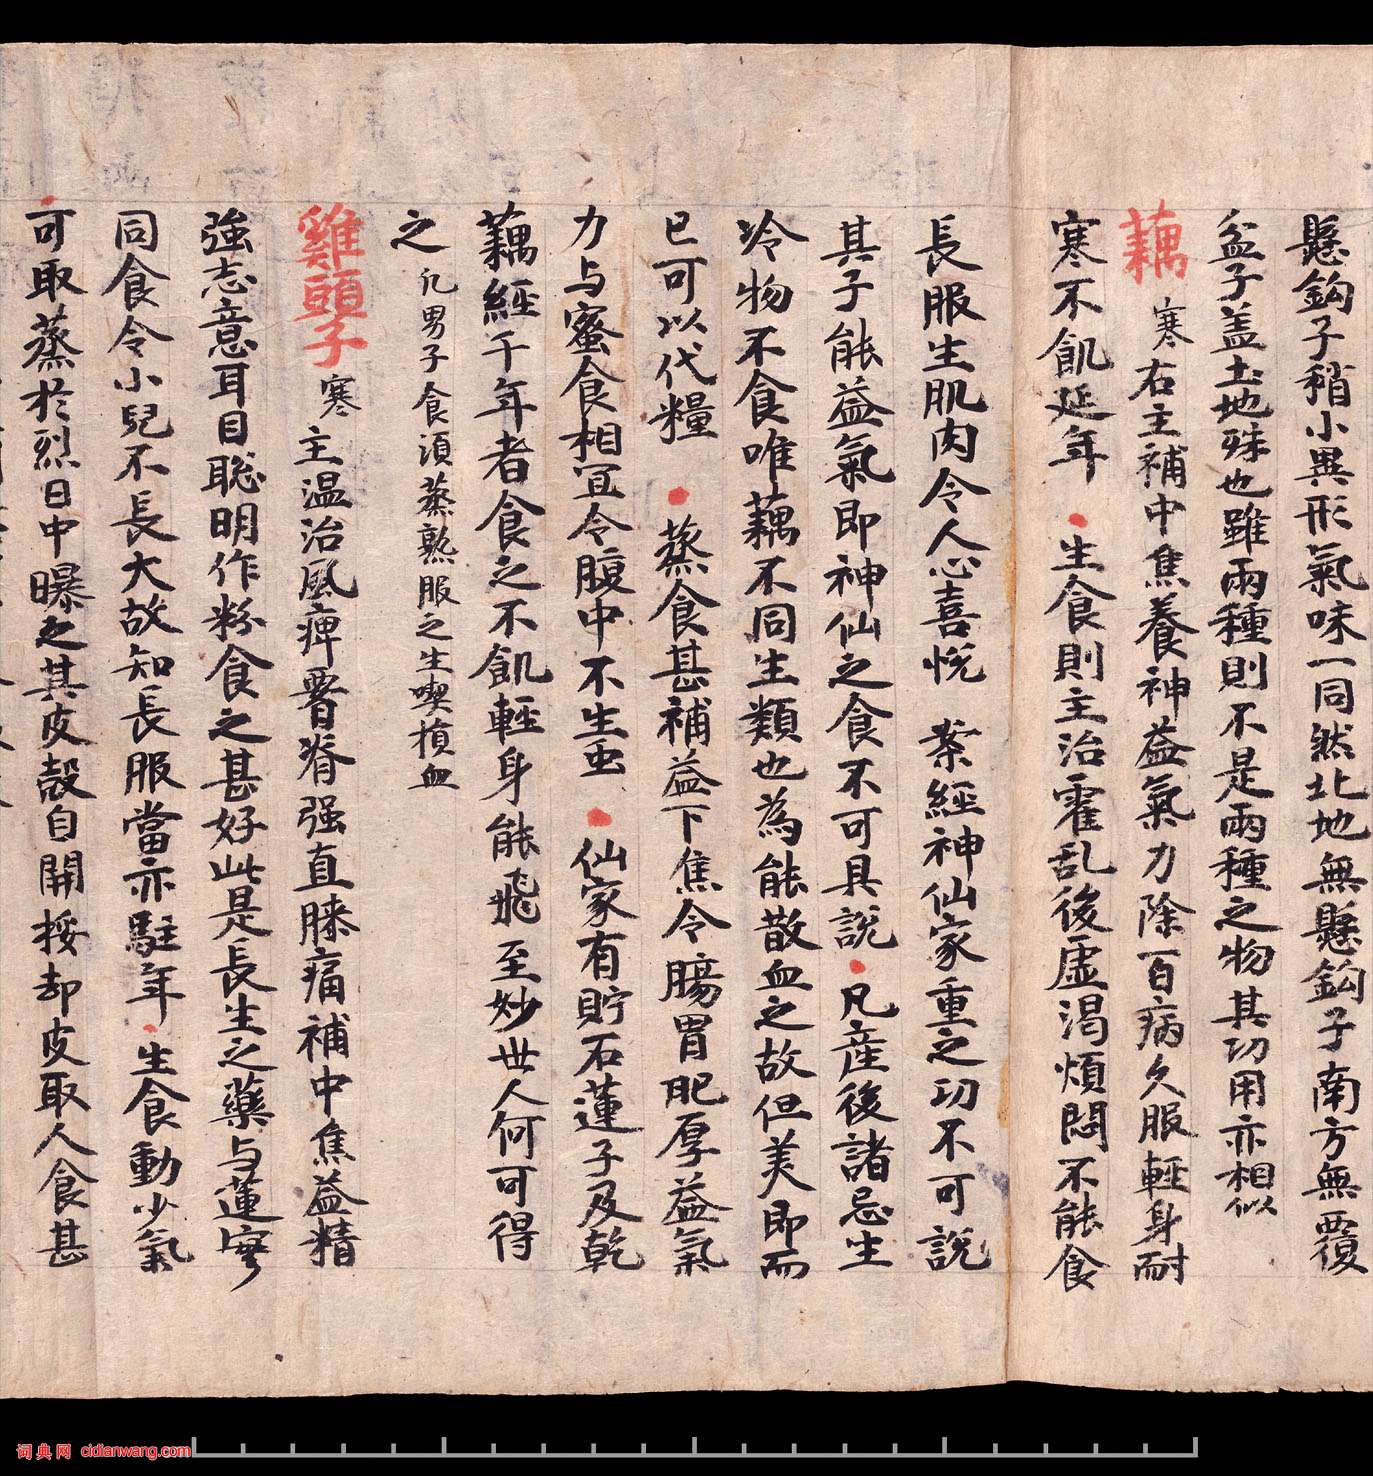 懸鈎子稍小異形氣味一同然北地無懸鈎子南方無覆
盆子盖土地殊也雖兩種則不是兩種之物其功用亦相似
藕 寒 右主補中焦養神益氣力除百病久服輕身耐
寒不飢延年 生食則主治霍乱後虛渴煩悶不能食
長服生肌肉令人心喜悅 案經神仙家重之功不可說
其子能益氣即神仙之食不可具說 凡產後諸忌生
冷物不食唯藕不同生類也為能散血之故但美即而
已可以代糧 蒸食甚補益下焦令腸胃肥厚益氣
力与蜜食相冝令腹中不生虫 仙家有貯石蓮子及乾
藕經千年者食之不飢輕身能飛至妙世人何可得
之 凡男子食湏蒸熟服之生喫損血
雞頭子 寒 主温治風痺腰脊强直膝痛補中焦益精
強志意耳目聡明作粉食之甚好此是長生之藥与蓮實
同食令小兒不長大故知長服當亦駐年 生食動少氣
可取蒸於烈日中曝之其皮殼自開挼却皮取人食甚
词典网 cidianwang.com